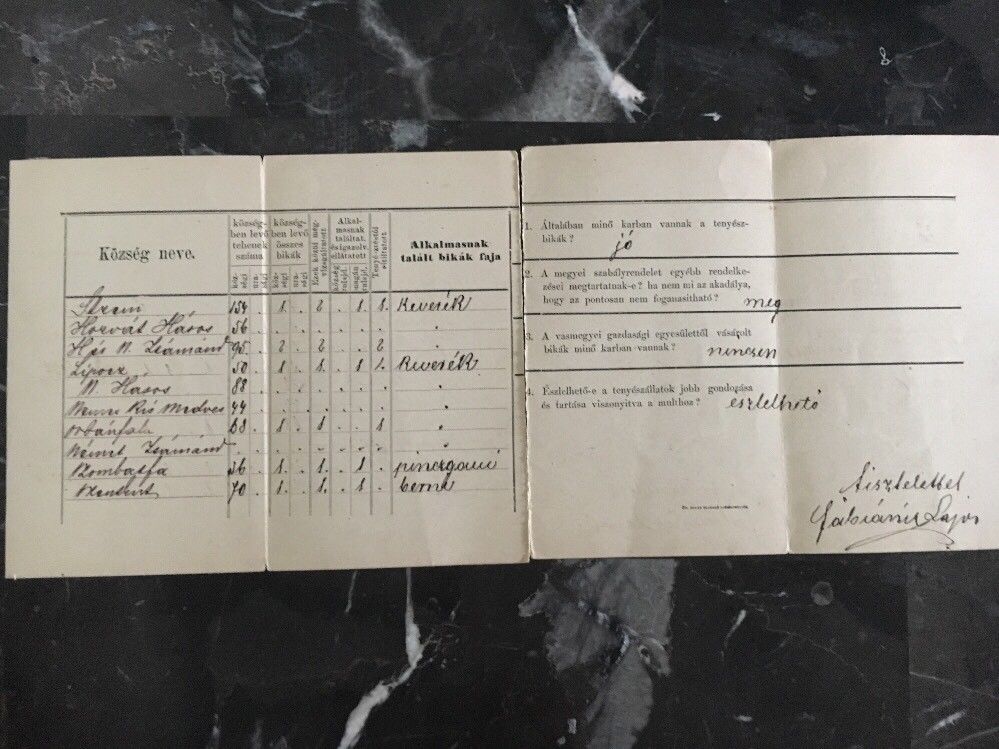 Község neve.
község-ben levő tehenek száma
község-ben levő összes bikák
Ezek közül meg-vizsgáltatott
Alkal-masnak találtat. és igazolv. elláttatott
Alkalmasnak talált bikák faja
köz-ségi
ura-sági
köz-ségi
ura-sági
Strem 154 . 1 . 2 . 1 1. Keverék
Horvát Hásos 56
N. Zsámánd 95 . 2 . 2 . . 2
Lipócz 50 . 1 . 1 . 1 Keverék
N. Hásos 88
Német Kis Medves 44
Orbánfalu 38 . 1 . 1 . . 1
Német Zsámánd
Szombatfa 36 . 1. . 1. . 1 . pinczgaui
Szentkút 70 . 1. . 1. . 1 . berni
1. Általában minő karban vannak a tenyész-
bikák? jó
2. A megyei szabályrendelet egyébb rendelke-
zései megtartatnak-e? ha nem mi az akadálya,
hogy az pontosan nem foganasitható? meg
3. A vasmegyei gazdasági egyesülettől vásárolt
bikák minő karban vannak? nincsen
4. Észlelhető-e a tenyészállatok jobb gondozása
és tartása viszonyitva a multhoz? észlelhető
Tisztelettel
Lajos